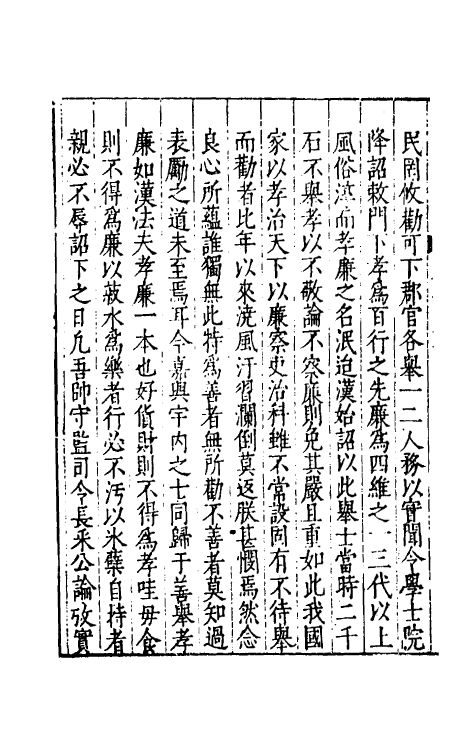 民罔攸勸可下郡官各舉一二人務以實聞令學士院
降詔敕門卜孝爲百行之先廉爲四維之一三代以上
風俗淳而孝廉之名泯迨漢始詔以此舉士當時二千
石不舉孝以不敬論不察廉則免其嚴且重如此我國
家以孝治天下以廉察吏治科雖不常設固有不待舉
而勸者比年以來澆風汙習瀾倒莫返朕甚憫焉然念
良心所蘊誰獨無此特爲善者無所勸不善者莫知過
表勵之道未至焉耳今嘉與宇内之士同歸于善舉孝
廉如漢法夫孝廉一本也好貨財則不得爲孝哇毋食
則不得爲廉以菽水爲樂者行必不汚以氷蘗自持者
親必不辱詔下之日凡吾帥守監司令長采公論攷實